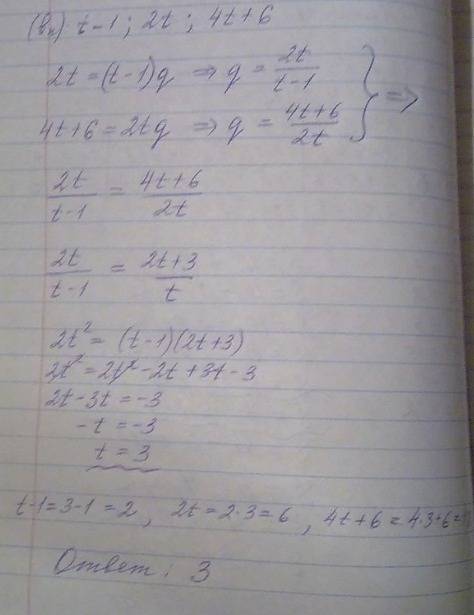 (bₙ) t-1 ; 2t ; 4t+6
2t = (t-1)q ⇒ q = 2t/(t-1) } ⇒
4t+6 = 2tq ⇒ q = (4t+6)/2t
2t/(t-1) = (4t+6)/2t
2t/(t-1) = (2t+3)/t
2t² = (t-1)(2t+3)
2t² = 2t² - 2t + 3t - 3
2t - 3t = -3
-t = -3
t = 3
t-1 = 3-1 = 2, 2t = 2·3 = 6, 4t+6 = 4·3+6 =
Ответ: 3